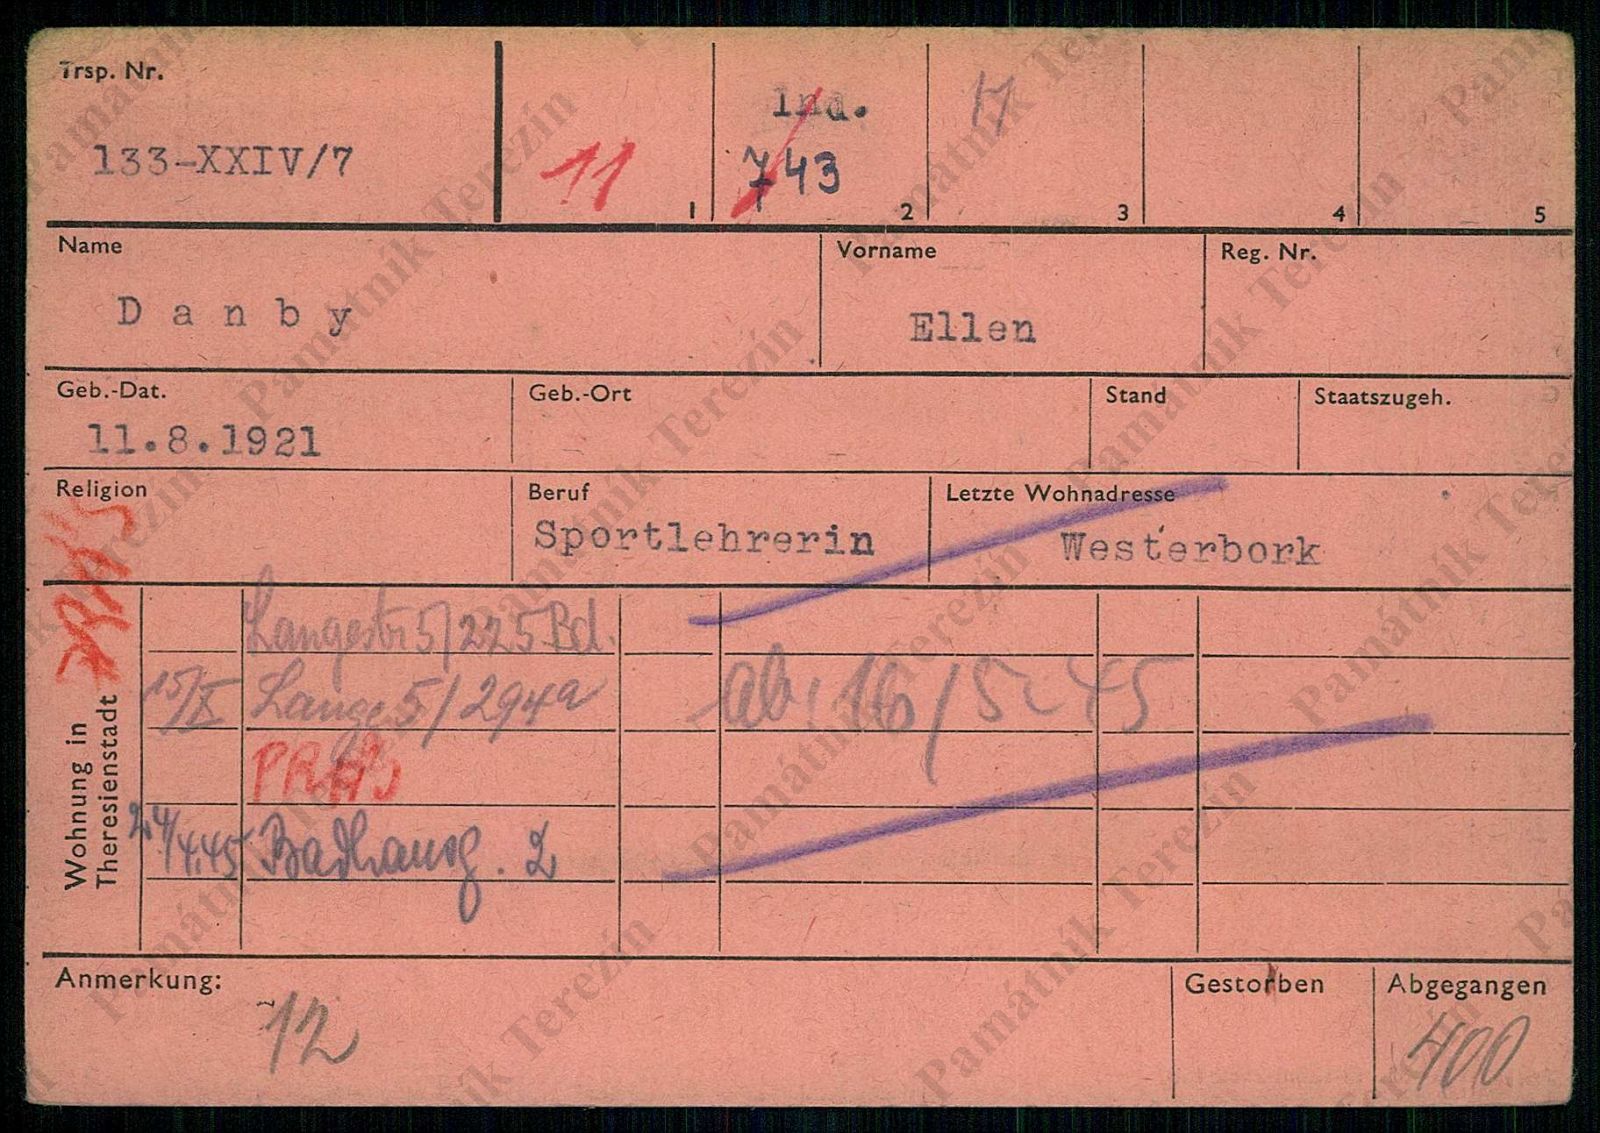 Trsp. Nr.
133-XXIV/7
11
1
Ind.
743
2
17
3
4
5
Name
Danby
Vorname
Ellen
Reg. Nr.
Geb.-Dat.
11.8.1921
Geb.-Ort
Stand
Staatszugeh.
Religion
Beruf
Sportlehrerin
Letzte Wohnadresse
Westerbork
Wohnung in
Theresienstadt
Langestr 5/225 Bd.
15/X Lange 5/294a
ab, 16/5 45
24/4.45 Badhausg. 2
Anmerkung:
12
Gestorben
Abgegangen
400
Památník Terezín